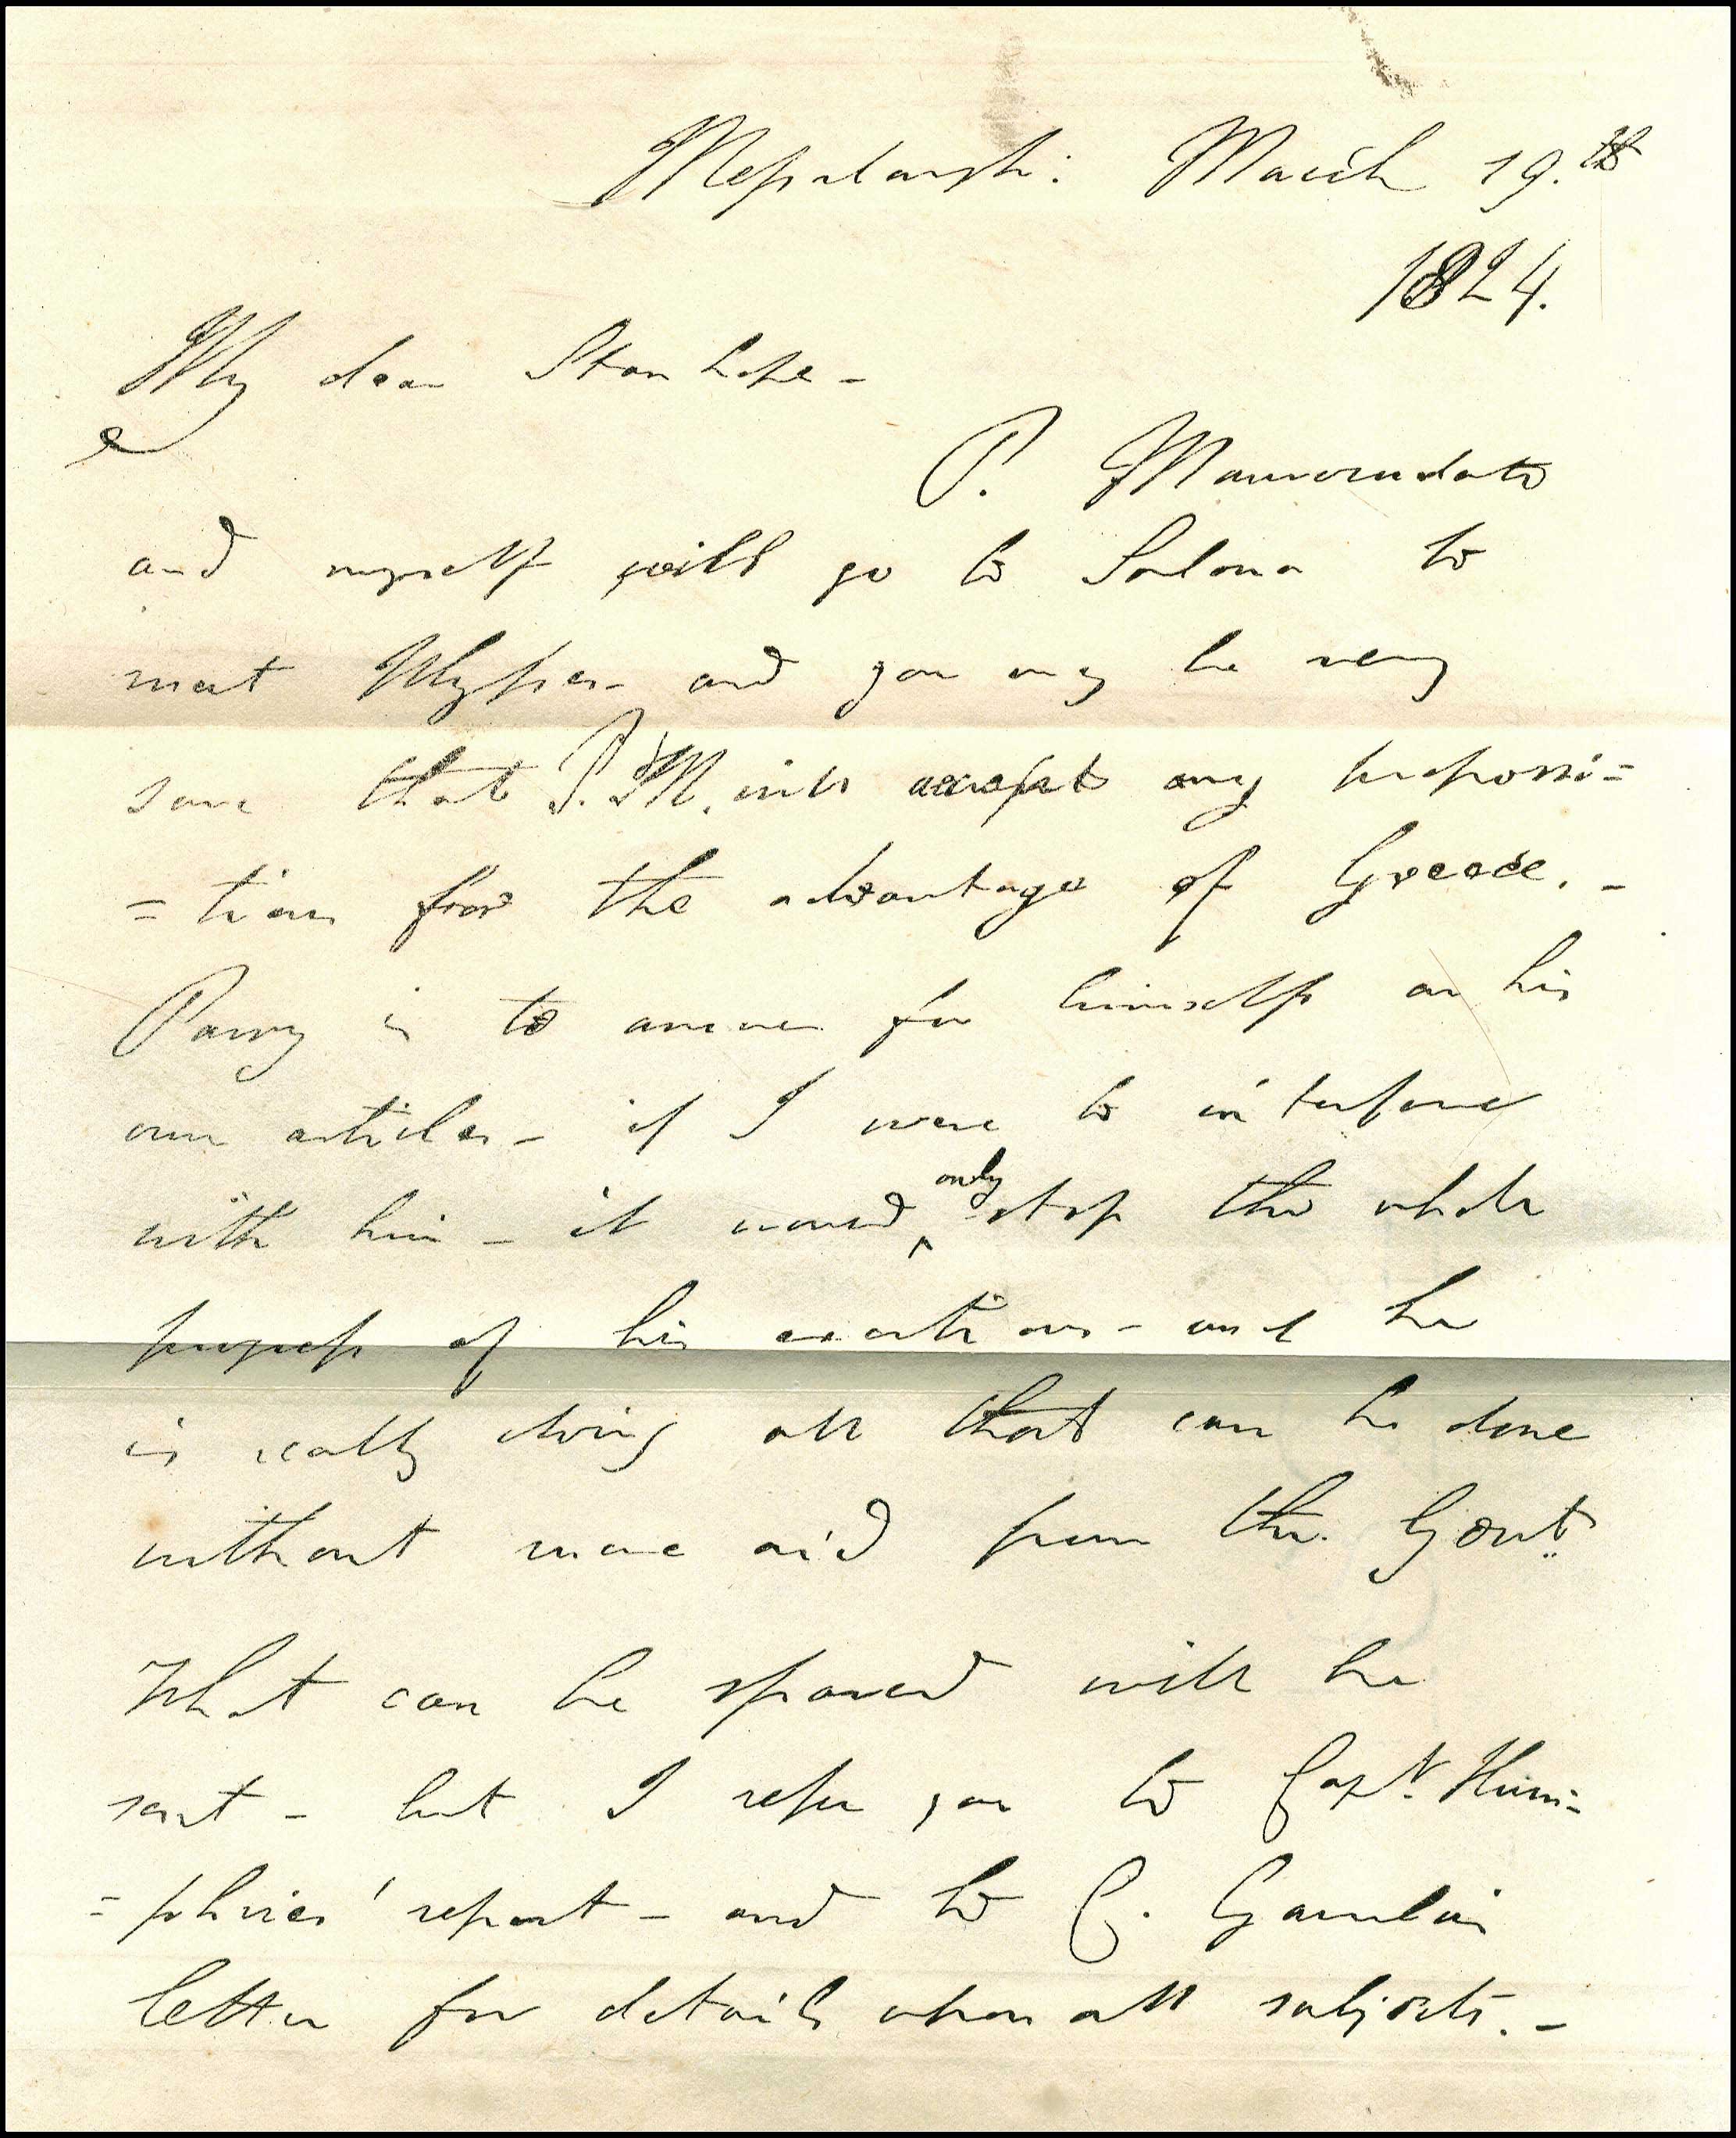 Messolonghi: March 19.th
1824.
My dear Stanhope -
P. Mavrocordato
and myself will go to Salona to
meet Ulysses - and you may be very
sure that P. M. will accept any propossi=
=tion for the advantage of Greece. -
Parry is to answer for himself on his
own articles - if I were to interfere
with him - it would only stop the whole
progress of his exertions - and he
is really doing all that can be done
without more aid from the Govt.
What can be spared will be
sent - but I refer you to Capt. Hum=
=phries' report - and to C. Gamba's
letter for details upon all subjects. -